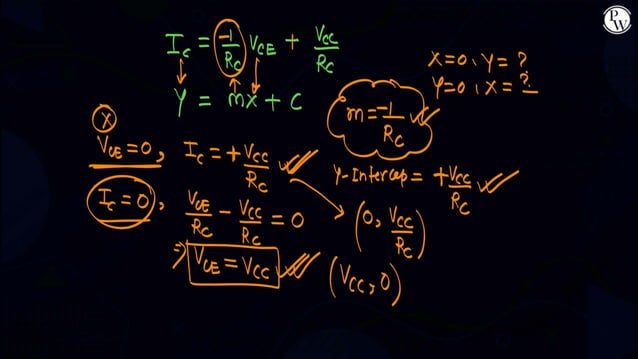 I_C = -1/R_C V_CE + V_CC/R_C
Y = mx + C
X=0, Y = ?
Y=0, X = ?
m = -1/R_C
X
V_CE = 0, I_C = + V_CC/R_C
Y-Intercep = + V_CC/R_C
I_C = 0, V_CE/R_C - V_CC/R_C = 0
(0, V_CC/R_C)
⇒ V_CE = V_CC
(V_CC, 0)
PW